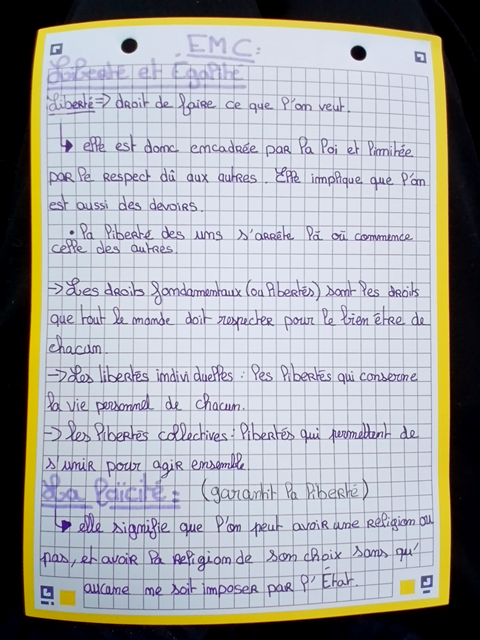 EMC:
Liberté et Egalité
Liberté => droit de faire ce que l'on veut.
↳ elle est donc encadrée par la loi et limitée
par le respect dû aux autres. Elle implique que l'on
est aussi des devoirs.
• la liberté des uns s'arrête là où commence
celle des autres.
-> Les droits fondamentaux (ou libertés) sont les droits
que tout le monde doit respecter pour le bien être de
chacun.
-> Les libertés individuelles : les libertés qui conserne
la vie personnel de chacun.
-> les libertés collectives : libertés qui permettent de
s'unir pour agir ensemble
La laïcité : (garantit la liberté)
↳ elle signifie que l'on peut avoir une religion ou
pas, et avoir la religion de son choix sans qu'
aucune me soit imposer par l'État.